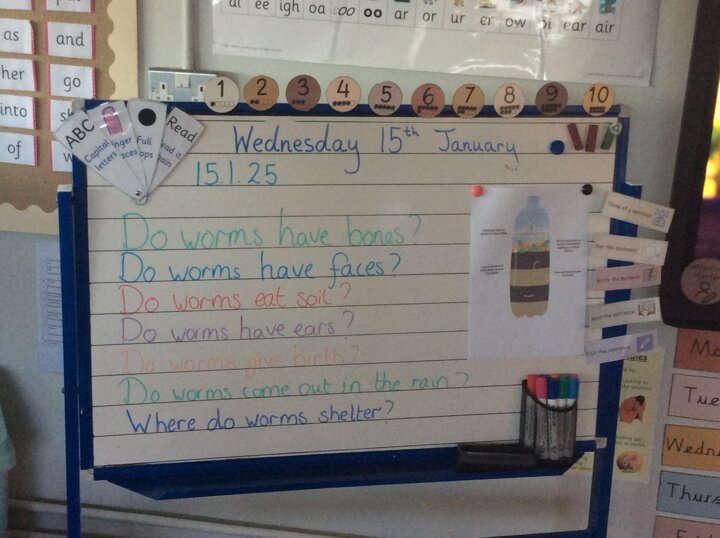 ai ee igh oa oo oo ar or ur er ow oi ear air
as and
her go
into
of
1 2 3 4 5 6 7 8 9 10
ABC
Capital letters
Full
Read
Wednesday 15th January
15.1.25
Do worms have bones?
Do worms have faces?
Do worms eat soil?
Do worms have ears?
Do worms give birth?
Do worms come out in the rain?
Where do worms shelter?
Think of a sentence
Say the sentence
Write the sentence
Read the sentence